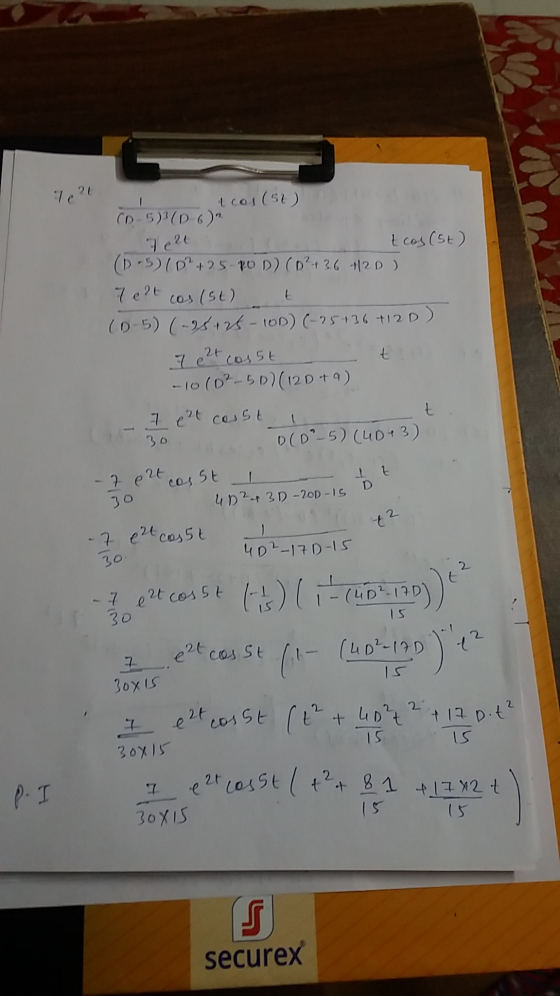 7e^{2t} \frac{1}{(D-5)^3(D-6)^2} t cos(5t)
\frac{7e^{2t}}{(D-5)(D^2+25-10D)(D^2+36+12D)} t cos(5t)
\frac{7e^{2t} cos(5t) t}{(D-5)(-25+25-10D)(-25+36+12D)}
\frac{7e^{2t} cos5t}{-10(D^2-5D)(12D+9)} t
-\frac{7}{30} e^{2t} cos5t \frac{1}{D(D-5)(4D+3)} t
-\frac{7}{30} e^{2t} cos5t \frac{1}{4D^2+3D-20D-15} \frac{1}{D} t
-\frac{7}{30} e^{2t} cos5t \frac{1}{4D^2-17D-15} t^2
-\frac{7}{30} e^{2t} cos5t (-\frac{1}{15}) (\frac{1}{1-\frac{(4D^2-17D)}{15}}) t^2
\frac{7}{30×15} e^{2t} cos5t (1-\frac{(4D^2-17D)}{15})^{-1} t^2
\frac{7}{30×15} e^{2t} cos5t (t^2+\frac{4D^2t^2}{15}+\frac{17}{15}D.t^2
P.I \frac{7}{30×15} e^{2t} cos5t (t^2+\frac{8}{15}1+\frac{17×2}{15}t)
securex